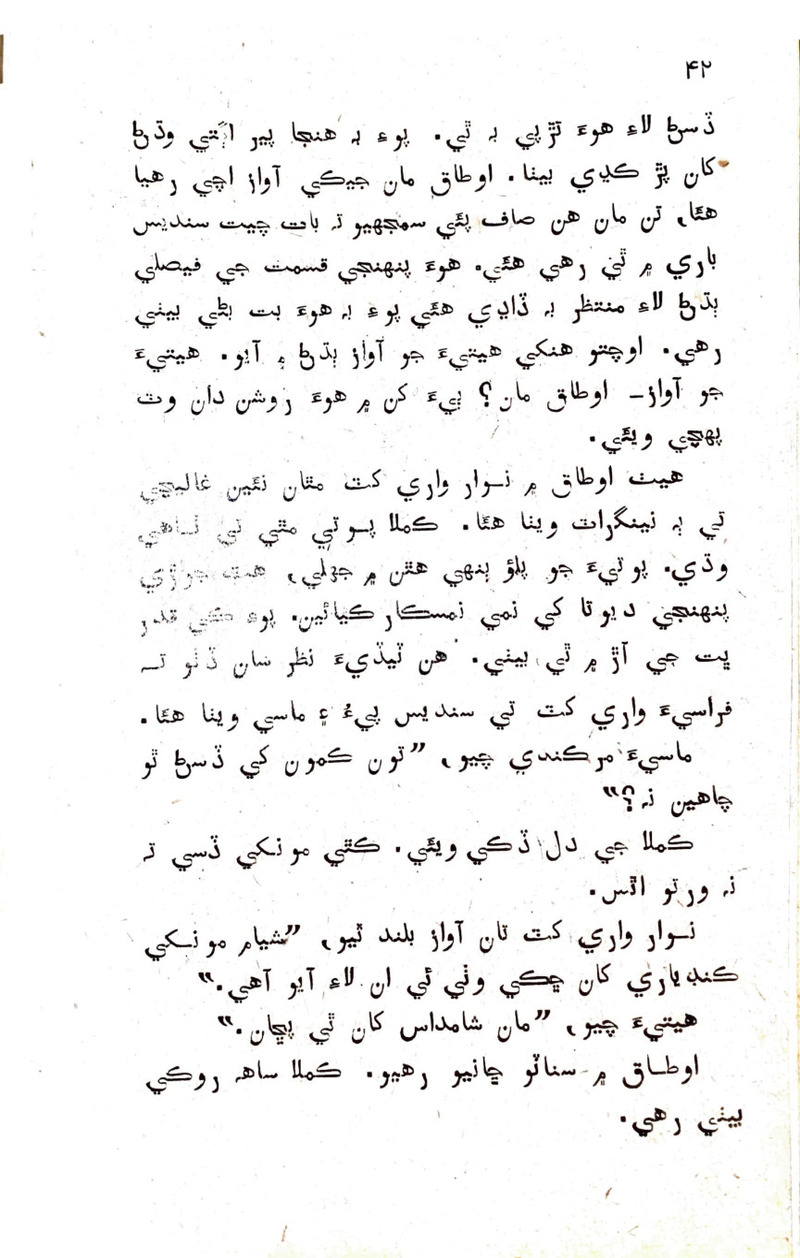 ۴۲
ڏسڻ لاءِ هوءَ تڙپي بہ ٿي. پوءِ بہ هنجا پير اڳتي وڌڻ
کان پڙ ڪڍي بيٺا. اوطاق مان جيڪي آواز اچي رهيا
هئا، تن مان هن صاف پئي سمجھيو تہ بات چيت سنديس
باري ۾ ٿي رهي هئي. هوءَ پنهنجي قسمت جي فيصلي
ٻڌڻ لاءِ منتظر بہ ڏاڍي هئي پوءِ بہ هوءَ بت بڻي بيٺي
رهي. اوچتو هنکي هيتيءَ جو آواز ٻڌڻ ۾ آيو. هيتيءَ
جو آواز— اوطاق مان؟ ٻيءَ کن ۾ هوءَ روشن دان وٽ
پهچي ويئي.
هيٺ اوطاق ۾ نوار واري کٽ مٿان نئين غاليچي
تي بہ نينگرات ويٺا هئا. ڪملا پوتي مٿي تي ٺاهي
وڌي. پوتيءَ جو پلؤ ٻنهي هٿن ۾ جهلي، هٿ جوڙي
پنهنجي ديوتا کي نمي نمسڪار ڪيائين. پوءِ ڪي قدر
ڀت جي آڙ ۾ ٿي بيٺي. هن ٽيڏيءَ نظر سان ڏٺو تہ
فراسيءَ واري کٽ تي سنديس پيءُ ۽ ماسي ويٺا هئا.
ماسيءَ مرڪندي چيو، ”تون ڪمون کي ڏسڻ ٿو
چاهين نہ؟“
ڪملا جي دل ڌڪي ويئي. ڪٿي مونکي ڏسي تہ
نہ ورتو اٿس.
نوار واري کٽ تان آواز بلند ٿيو، ”شيام مونکي
ڪنڊياري کان ڇڪي وٺي ٿي ان لاءِ آيو آهي.“
هيتيءَ چيو، ”مان شامداس کان ٿي پڇان.“
اوطاق ۾ سناٽو ڇانيو رهيو. ڪملا ساهہ روڪي
بيٺي رهي.